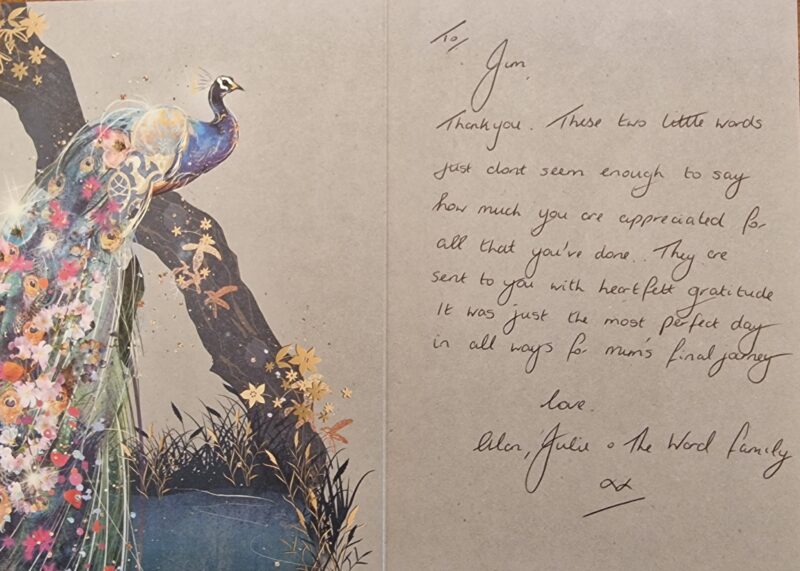 To,
Jim
Thankyou. These two little words
just dont seem enough to say
how much you are appreciated for
all that you've done. They are
sent to you with heartfelt gratitude
It was just the most perfect day
in all ways for mum's final journey
love.
Julie & The Ward family
xx